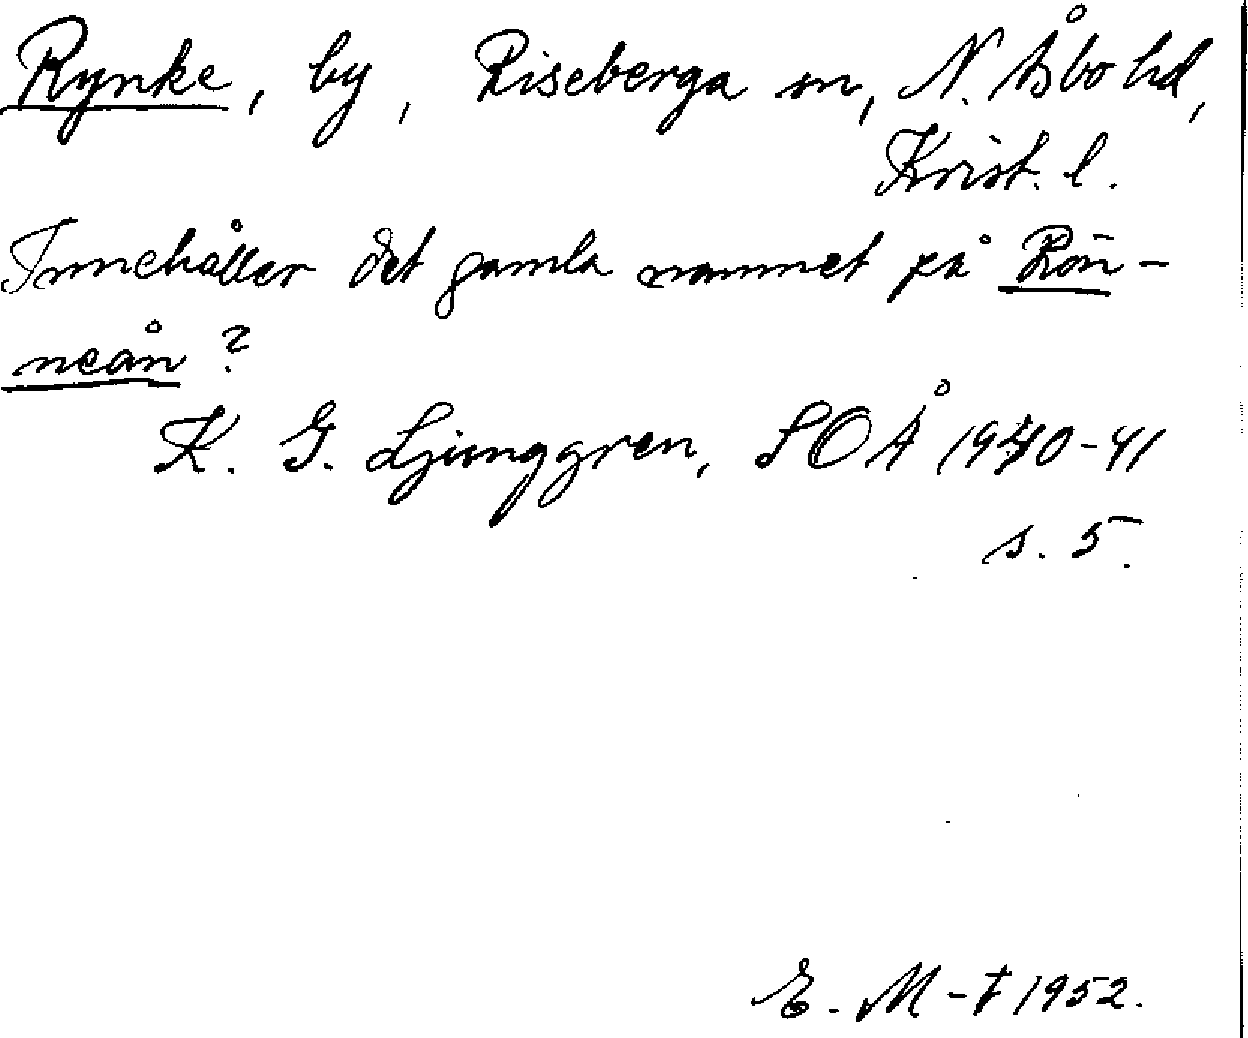 Rynke, by, Riseberga sn, N. Åsbo hd,
Krist. l.
Innehåller det gamla namnet på Rön-
neån?
K. G. Ljunggren, SOÅ 1940-41
s. 5.
E. M-F 1952.